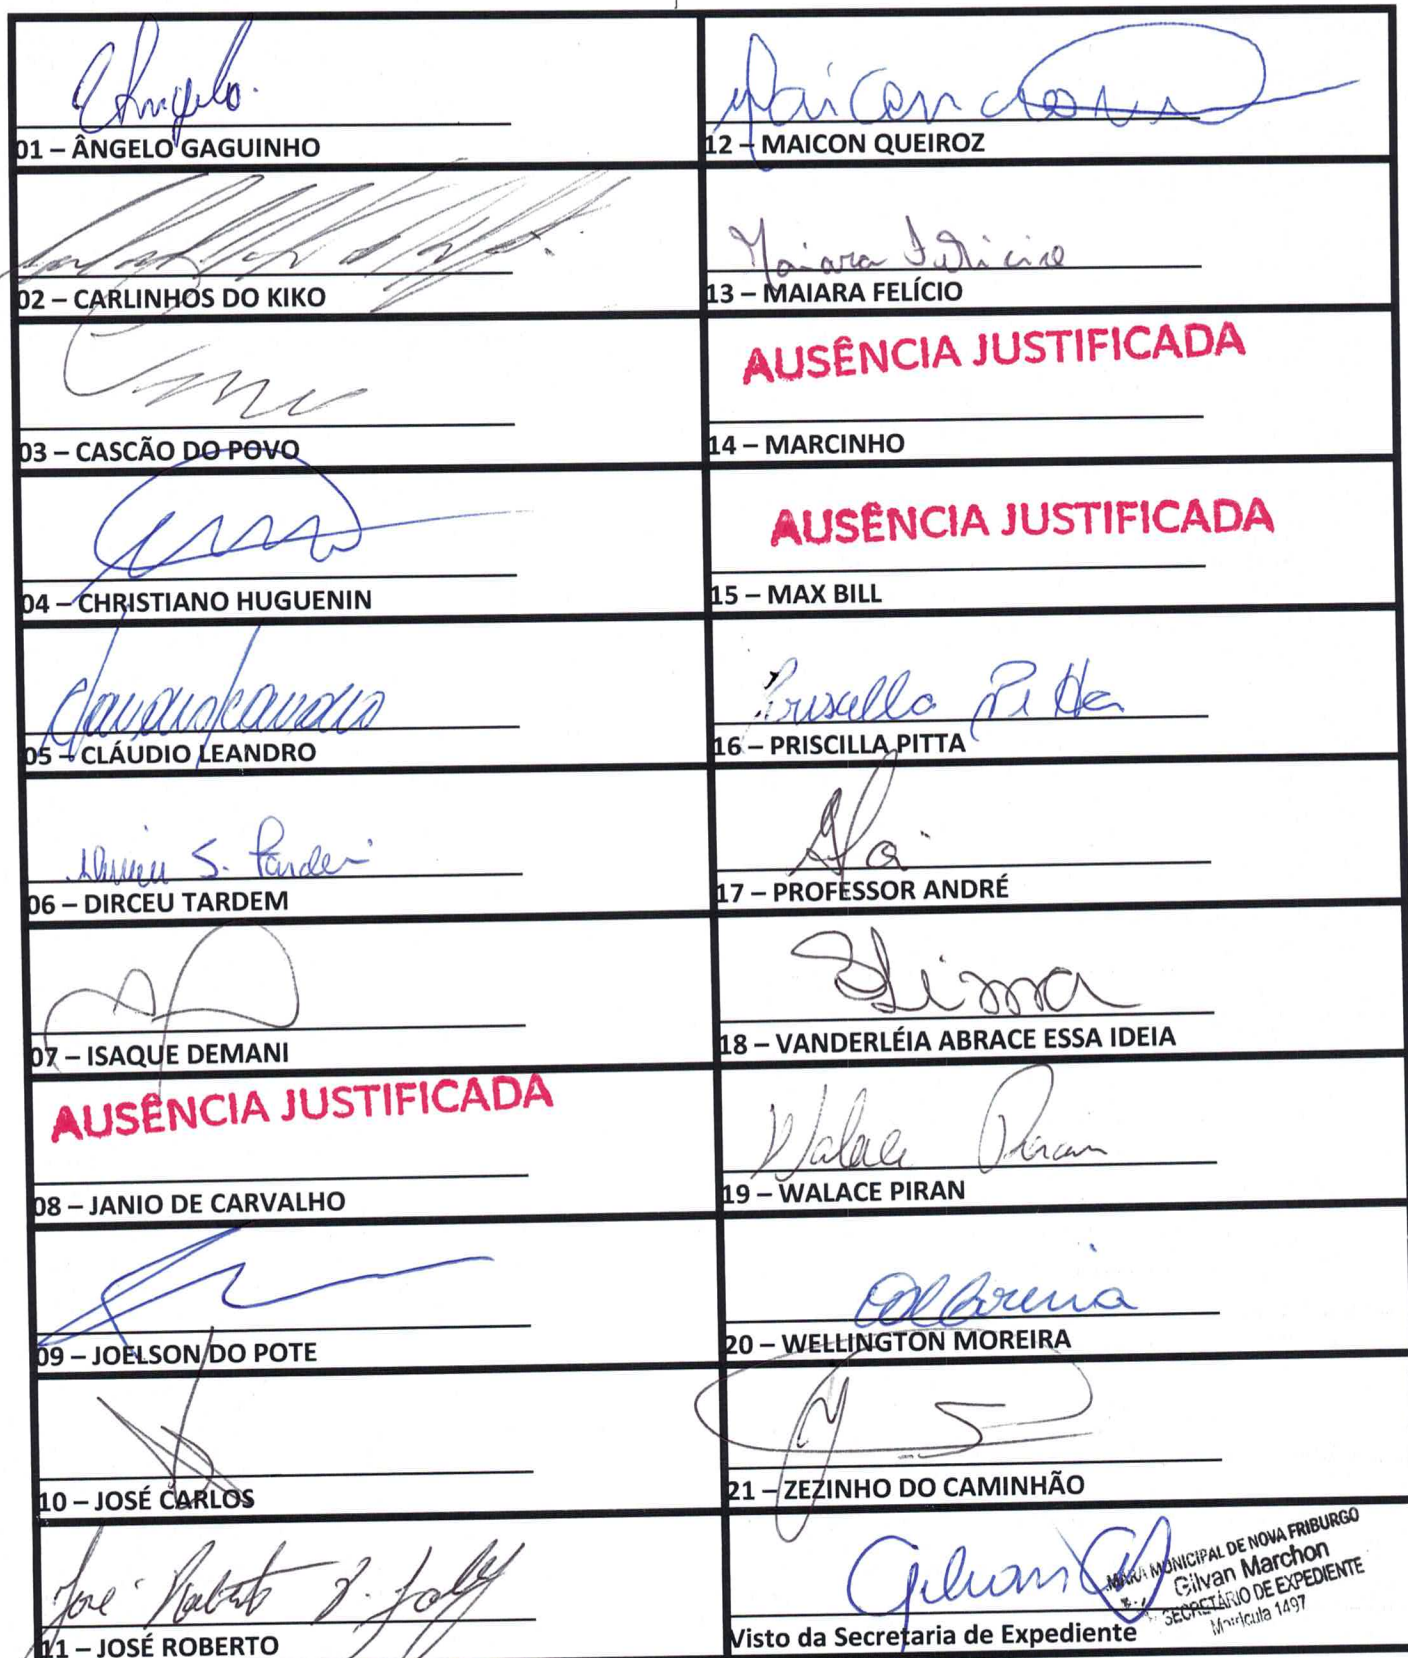 Ângelo.
01 – ÂNGELO GAGUINHO
02 – CARLINHOS DO KIKO
03 – CASCÃO DO POVO
04 – CHRISTIANO HUGUENIN
Claudio Leandro
05 – CLÁUDIO LEANDRO
Dirceu S. Tardem
06 – DIRCEU TARDEM
07 – ISAQUE DEMANI
AUSÊNCIA JUSTIFICADA
08 – JANIO DE CARVALHO
09 – JOELSON DO POTE
10 – JOSÉ CARLOS
José Roberto
11 – JOSÉ ROBERTO
Maicon
12 – MAICON QUEIROZ
Maiara Felicio
13 – MAIARA FELÍCIO
AUSÊNCIA JUSTIFICADA
14 – MARCINHO
AUSÊNCIA JUSTIFICADA
15 – MAX BILL
Priscilla Pitta
16 – PRISCILLA PITTA
17 – PROFESSOR ANDRÉ
Lima
18 – VANDERLÉIA ABRACE ESSA IDEIA
Walace Piran
19 – WALACE PIRAN
20 – WELLINGTON MOREIRA
21 – ZEZINHO DO CAMINHÃO
Gilvan
MUNICIPAL DE NOVA FRIBURGO
Gilvan Marchon
SECRETÁRIO DE EXPEDIENTE
Matrícula 1497
Visto da Secretaria de Expediente